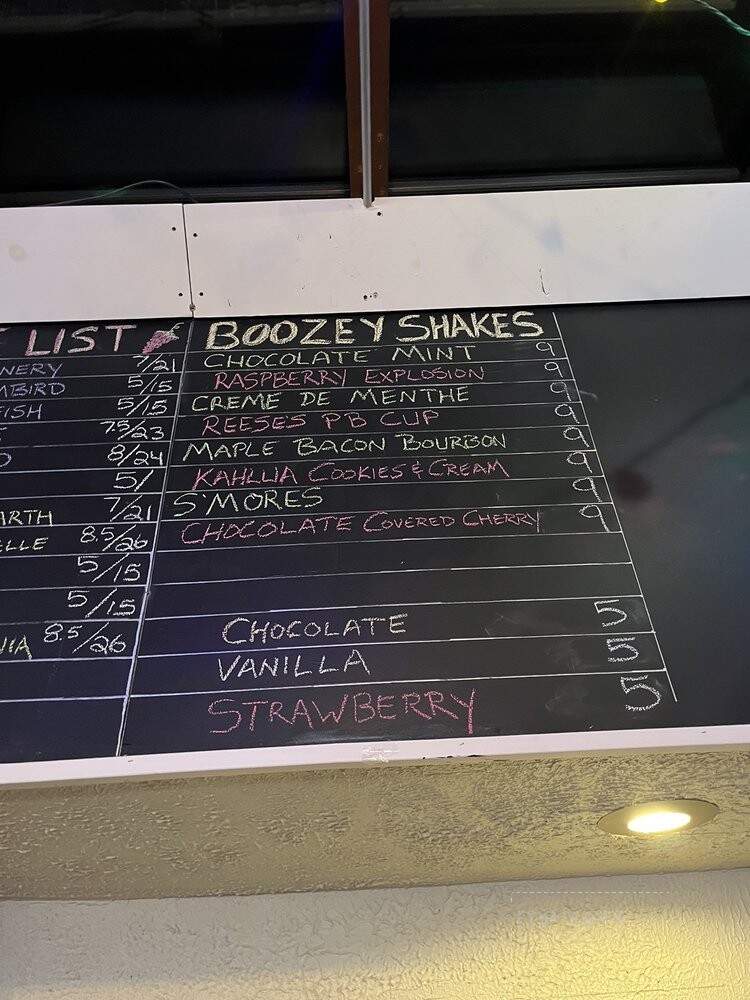 LIST
NERY 7/21
MBIRD 5/15
FISH 5/15
7.5/23
8/24
5/
ARTH 7/21
ELLE 8.5/26
5/15
5/15
NIA 8.5/26
BOOZEY SHAKES
CHOCOLATE MINT 9
RASPBERRY EXPLOSION 9
CREME DE MENTHE 9
REESE'S PB CUP 9
MAPLE BACON BOURBON 9
KAHLUA COOKIES & CREAM 9
S'MORES 9
CHOCOLATE COVERED CHERRY 9
CHOCOLATE 5
VANILLA 5
STRAWBERRY 5